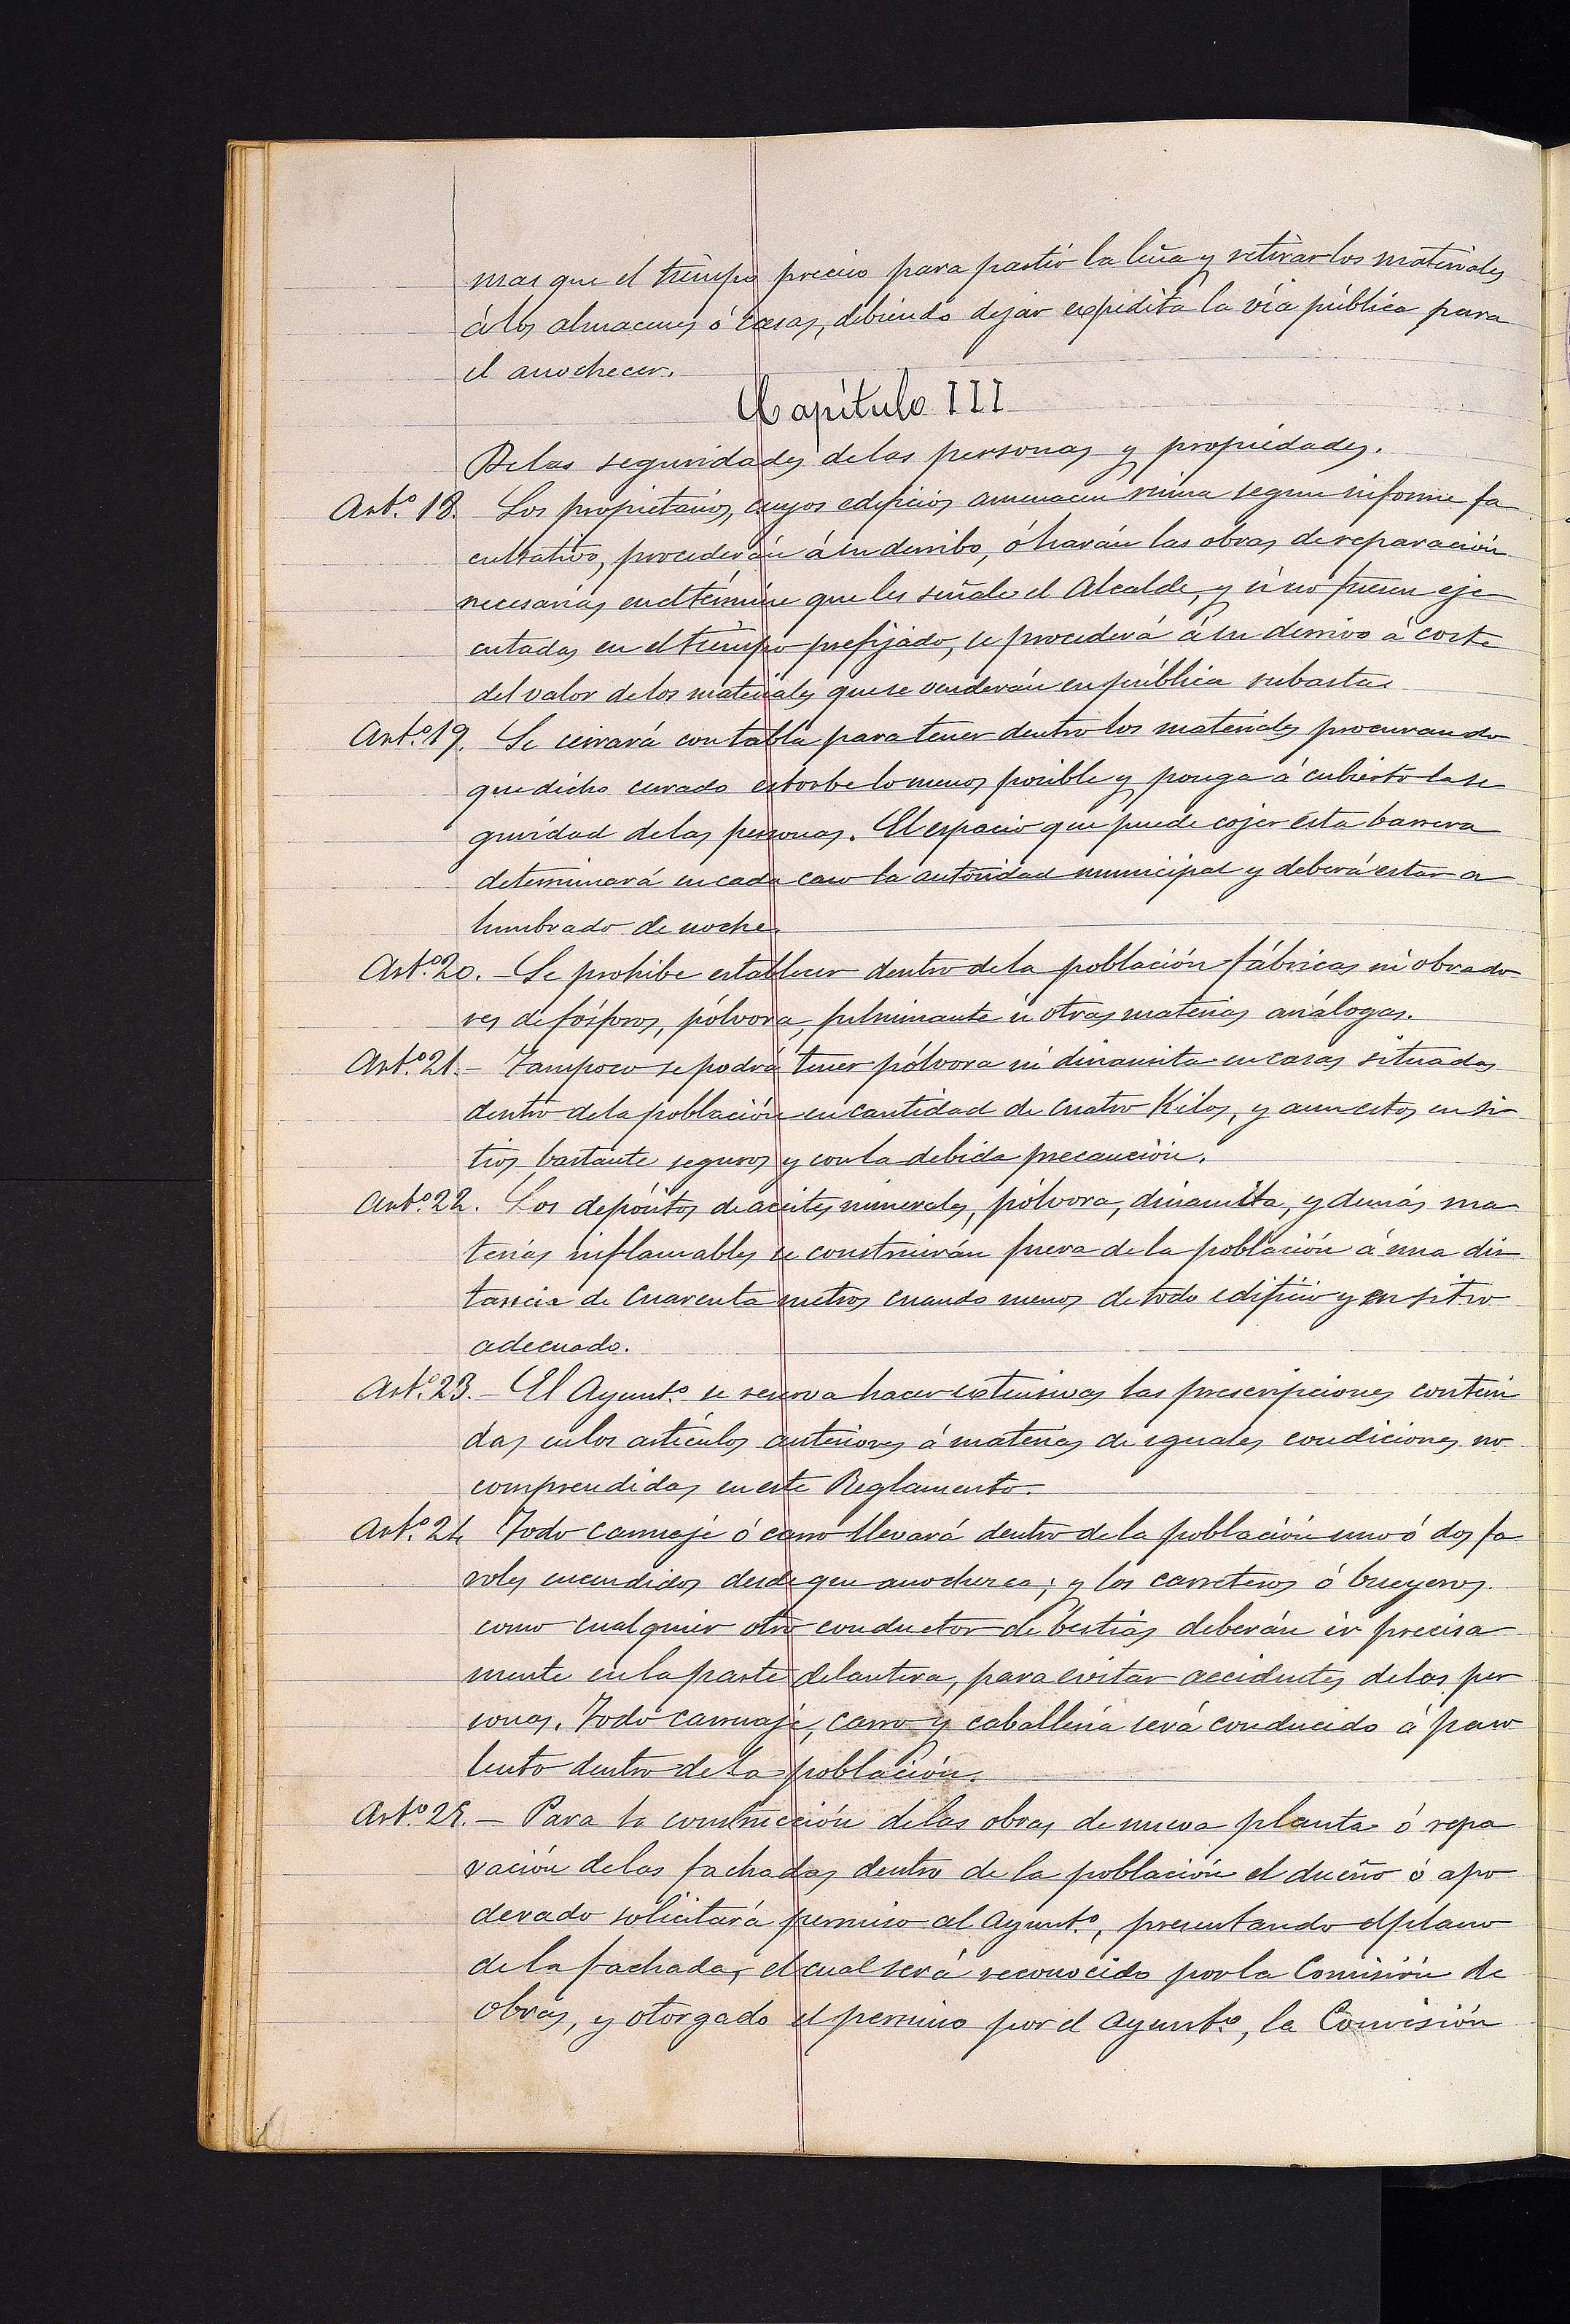 mas que el tiempo preciso para partir la leña y retirar los materiales
á los almacenes ó casas, debiendo dejar expedita la vía pública para
el anochecer.
Capítulo III
De las seguridades de las personas y propiedades.
Art.º 18. Los propietarios, cuyos edificios amenacen ruina segun informe fa
cultativo, procederán á su derribo, ó harán las obras de reparación
necesarias en el término que les señale el Alcalde, y si no fuesen eje
cutadas en el tiempo prefijado, se procederá á su derrivo á coste
del valor de los materiales que se venderán en pública subasta.
Art.º 19. Se cerrará con tabla para tener dentro los materiales procurando
que dicho cerrado estorbe lo menos posible y ponga á cubierto la se
guridad de las personas. El espacio que puede cojer esta barrera
determinará en cada caso la autoridad municipal y deberá estar a
lumbrado de noche.
Art.º 20. - Se prohibe establecer dentro de la población fábricas ni obrado
res de fósforos, pólvora, fulminante ú otras materias análogas.
Art.º 21. - Tampoco se podrá tener pólvora ni dinamita en casas situadas
dentro de la población en cantidad de cuatro Kilos, y aun estos en si
tios bastante seguros y con la debida precaución.
Art.º 22. Los depósitos de aceites minerales, pólvora, dinamita, y demás ma
terias inflamables se construirán fuera de la población á una dis
tancia de cuarenta metros cuando menos de todo edificio y en sitio
adecuado.
Art.º 23. - El Ayunt.º se reserva hacer extensivas las prescripciones conteni
das en los artículos anteriores á materias de iguales condiciones no
comprendidas en este Reglamento.
Art.º 24 Todo carruaje ó carro llevará dentro de la población uno ó dos fa
roles encendidos desde que anochezca; y los carreteros ó bueyeros
como cualquier otro conductor de bestias deberán ir precisa
mente en la parte delantera, para evitar accidentes de las per
sonas. Todo carruaje, carro y caballería será conducido á paso
lento dentro de la población.
Art.º 25. - Para la construcción de las obras de nueva planta ó repa
ración de las fachadas dentro de la población el dueño ó apo
derado solicitará permiso al Ayunt.º, presentando el plano
de la fachada, el cual será reconocido por la Comisión de
obras, y otorgado el permiso por el Ayunt.º, la Comisión